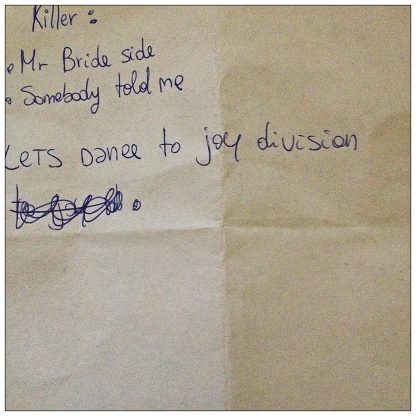 Killer :
• Mr Bride side
• Somebody told me
LETS Dance to joy division